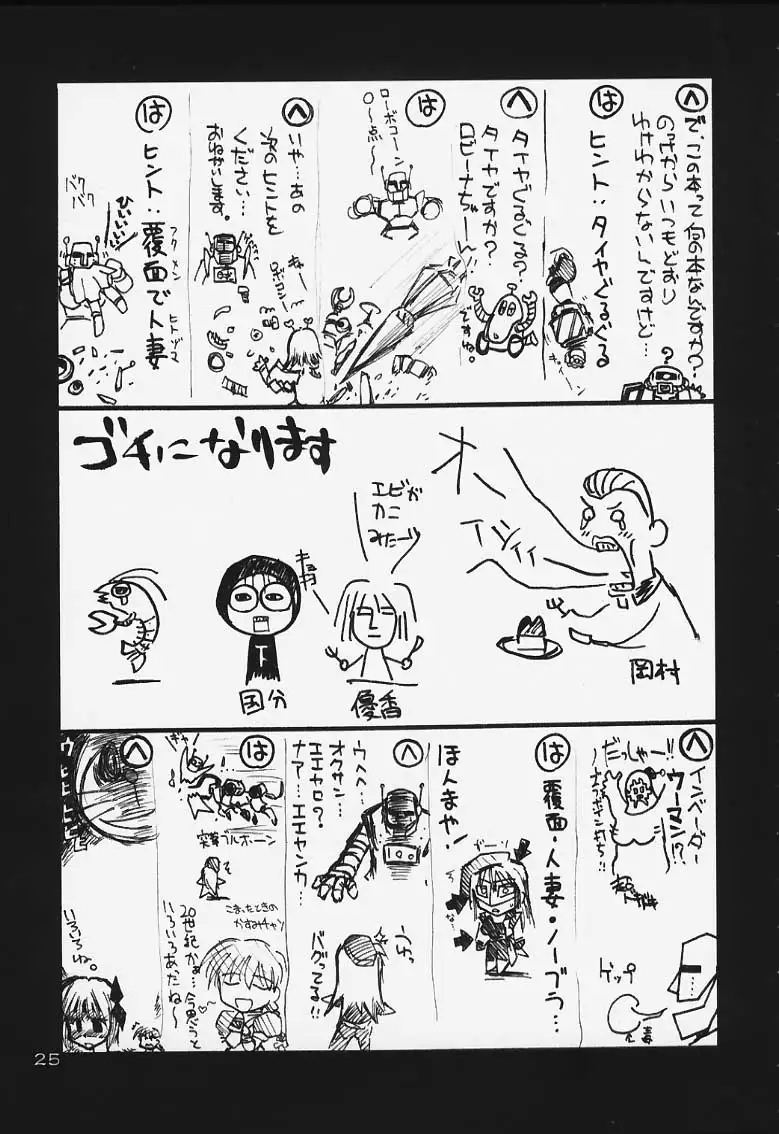 へ
で、この本って何の本なんですか?
のっけからいつもどおり
わけわからないんですけど…
?
は
ヒント:タイヤぐるぐる
へ
タイヤぐるぐる?
タイヤですか?
ロビーナちゃーん
ですね。
は
ローボコーン
0〜点〜
へ
いや…あの
次のヒントを
ください…
おねがいします。
きゃー
ロボコーン
は
ヒント:覆面で人妻
フクメン
ヒトヅマ
ひいいいい!!
バクバク
ゴチになります
オーイシイィ
岡村
エビが
カニ
みたーい
キョロ
優香
下
国分
へ
インベーダー
ウーマン!?
だっしゃー!!
ゲップ
毒
は
覆面・人妻・ノーブラ…
ほんまや!
ゴーー
へ
ウヘヘ…
オクサン…
エエヤロ?
ナァ…エエヤンカ…
うわっ
バグってる!!
は
ギャー
突撃ブルホーン
そ
こまったときの
かすみチャン
20世紀かぁ…今思うと
いろいろあったね〜
へ
いろいろね。
25